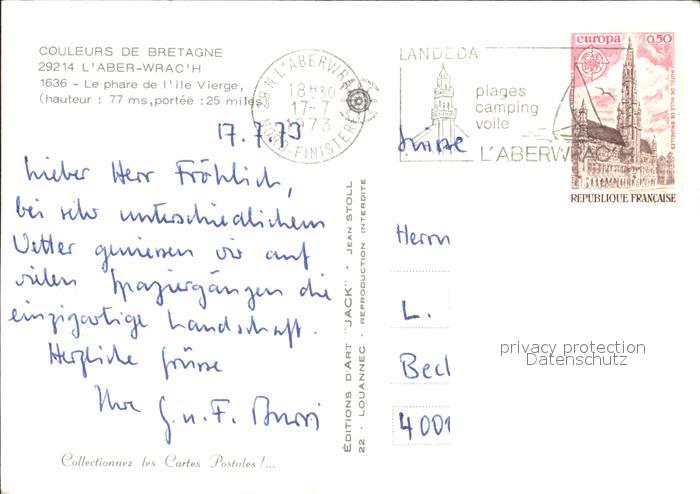 COULEURS DE BRETAGNE
29214 L'ABER-WRAC'H
1636 - Le phare de l'ile Vierge,
(hauteur : 77 ms, portée : 25 miles
29 N L'ABERWRAC'H
18H30
17-7
1973
NORD-FINISTERE
LANDEDA
plages
camping
voile
L'ABERWRAC'H
europa 0,50
HOTEL DE VILLE DE BRUXELLES
REPUBLIQUE FRANÇAISE
17.7.73
Lieber Herr Fröhlich,
bei sehr unterschiedlichem
Wetter geniessen wir auf
vielen Spaziergängen die
einzigartige Landschaft.
Herzliche Grüsse
Ihre G. u. F.
Suisse
Herrn
L.
Becl
4001
EDITIONS D'ART "JACK"
22 - LOUANNEC - REPRODUCTION INTERDITE
JEAN STOLL
privacy protection
Datenschutz
Collectionnez les Cartes Postales !...